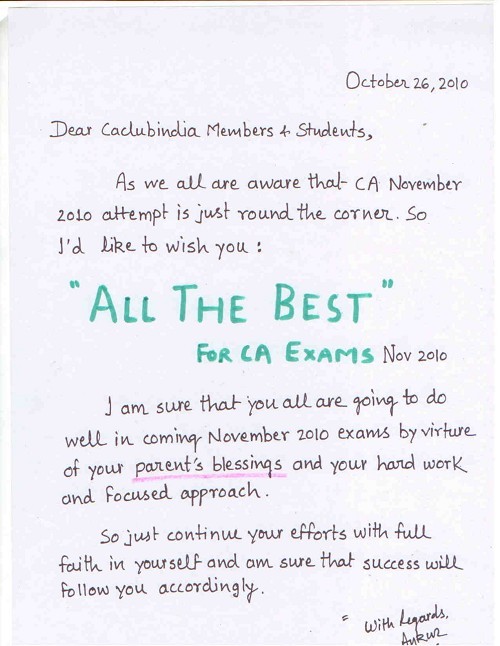 October 26, 2010
Dear Caclubindia Members & Students,
As we all are aware that CA November
2010 attempt is just round the corner. So
I'd like to wish you :
"ALL THE BEST"
FOR CA EXAMS Nov 2010
I am sure that you all are going to do
well in coming November 2010 exams by virture
of your parent's blessings and your hard work
and focused approach.
So just continue your efforts with full
faith in yourself and am sure that success will
follow you accordingly.
With Regards,
Ankur